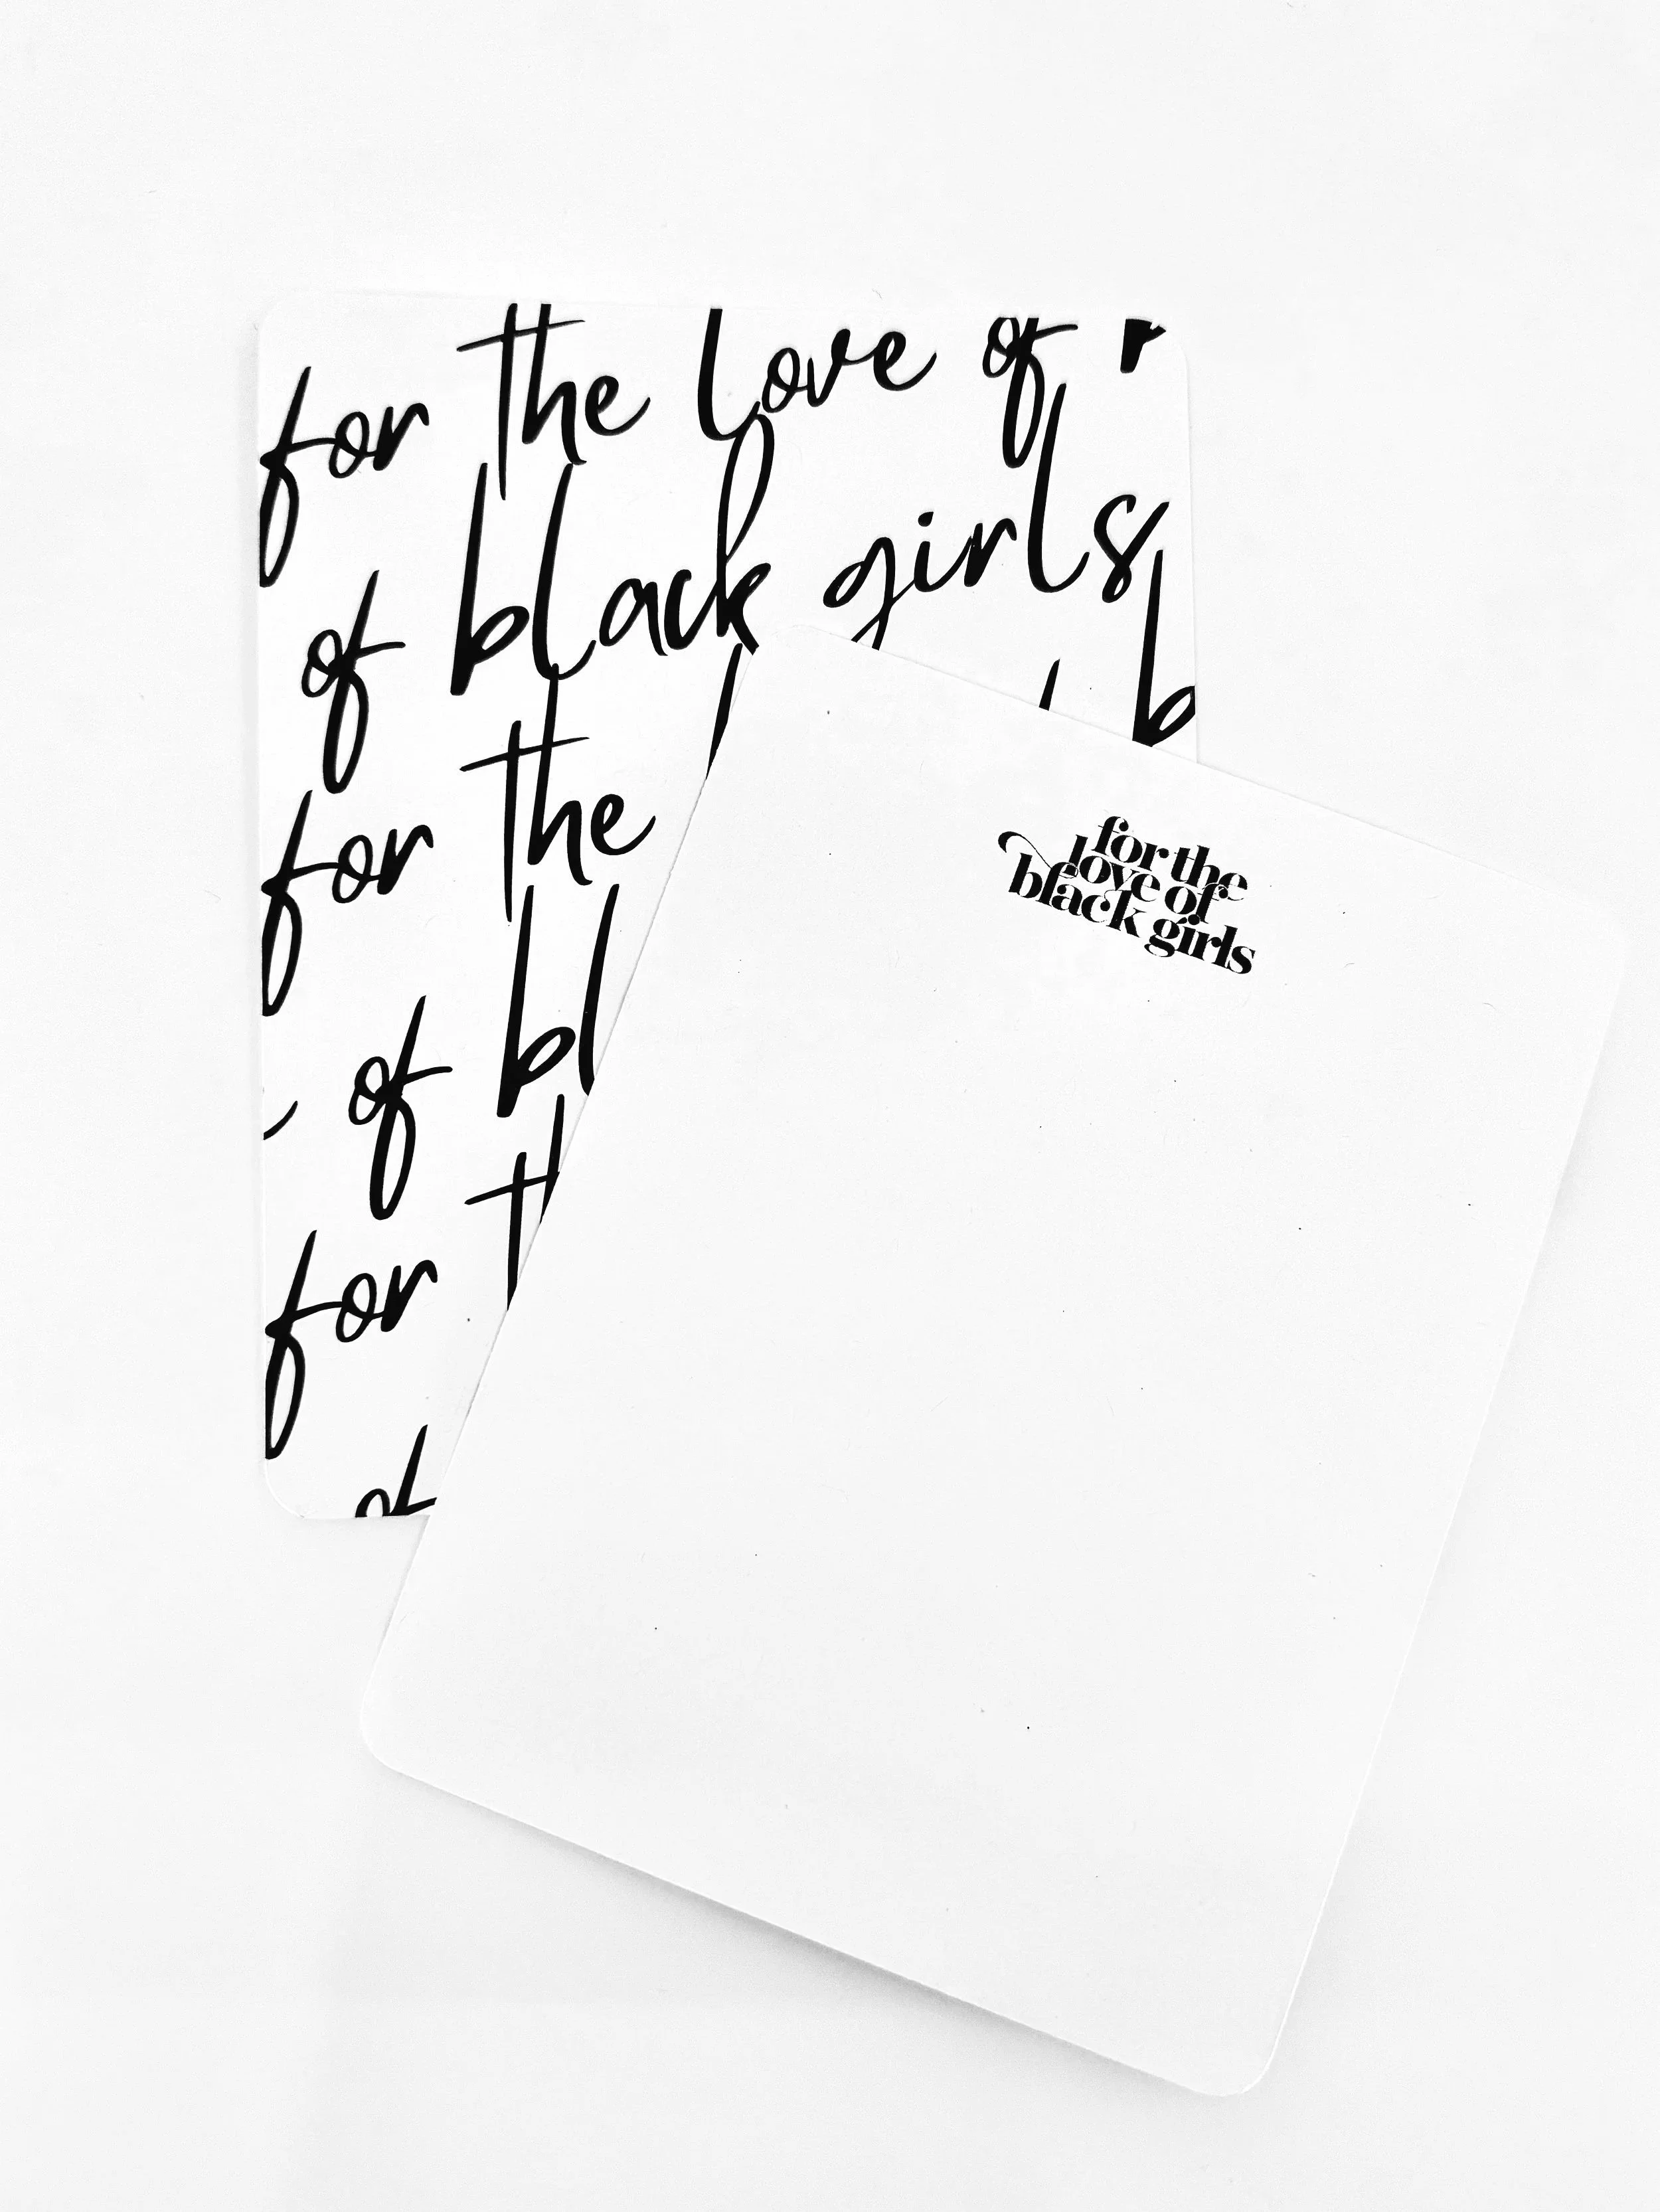 for the love of
of black girls
for the
of bl
for th
of
for the
love of
black girls